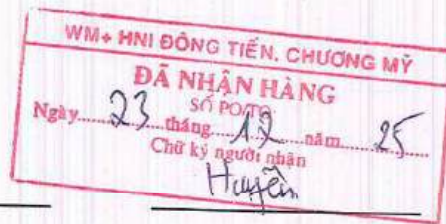 WM+ HNI ĐÔNG TIẾN, CHƯƠNG MỸ
ĐÃ NHẬN HÀNG
SỐ PO/TO
Ngày 23 tháng 12 năm 25
Chữ ký người nhận
Huyền